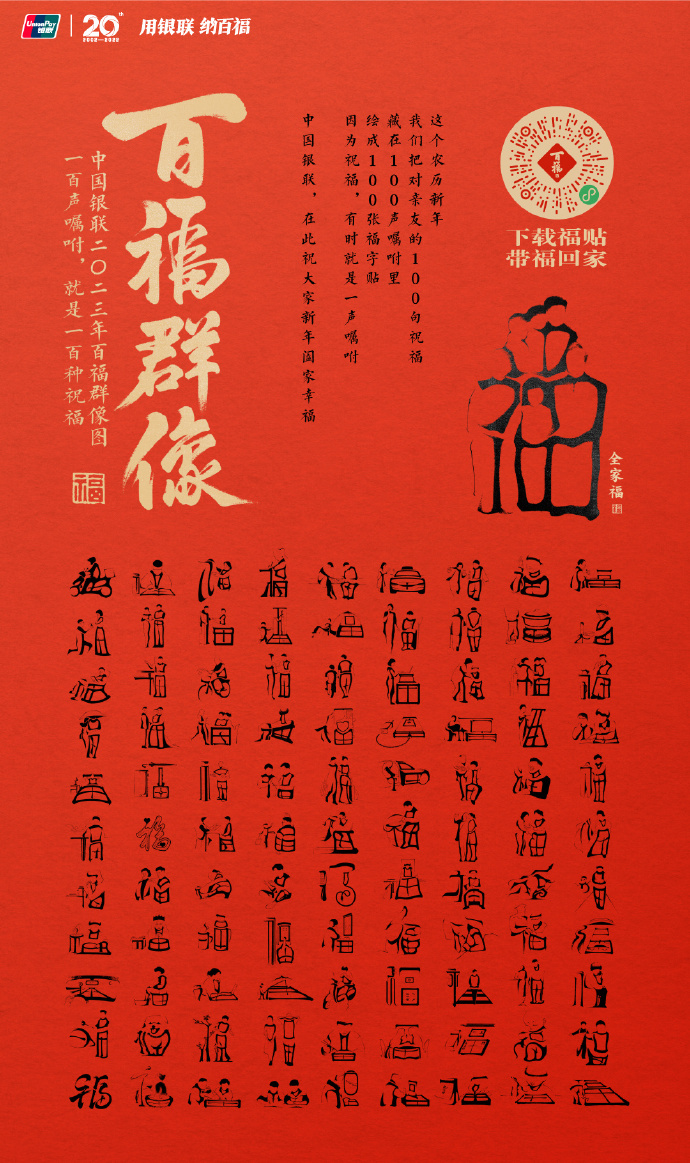 UnionPay
银联
20th
2002—2022
用银联 纳百福
百福群像
中国银联二〇二三年百福群像图
一百声嘱咐，就是一百种祝福
福
这个农历新年
我们把对亲友的100句祝福
藏在100声嘱咐里
绘成100张福字贴
因为祝福，有时就是一声嘱咐
中国银联，在此祝大家新年阖家幸福
百福
下载福贴
带福回家
福
全家福